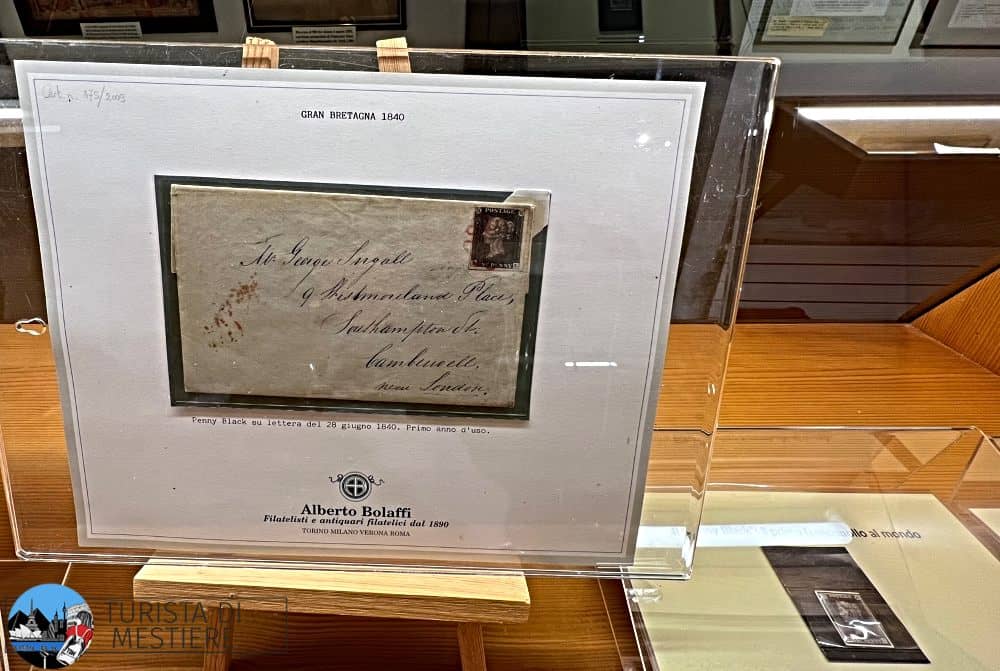 Cert. n. 475/2003
GRAN BRETAGNA 1840
POSTAGE
PENNY
Mr. George Ingall
9 Westmoreland Place,
Southampton St.
Camberwell,
near London.
Penny Black su lettera del 28 giugno 1840. Primo anno d'uso.
Alberto Bolaffi
Filatelisti e antiquari filatelici dal 1890
TORINO MILANO VERONA ROMA
al mondo
TURISTA DI
MESTIERE